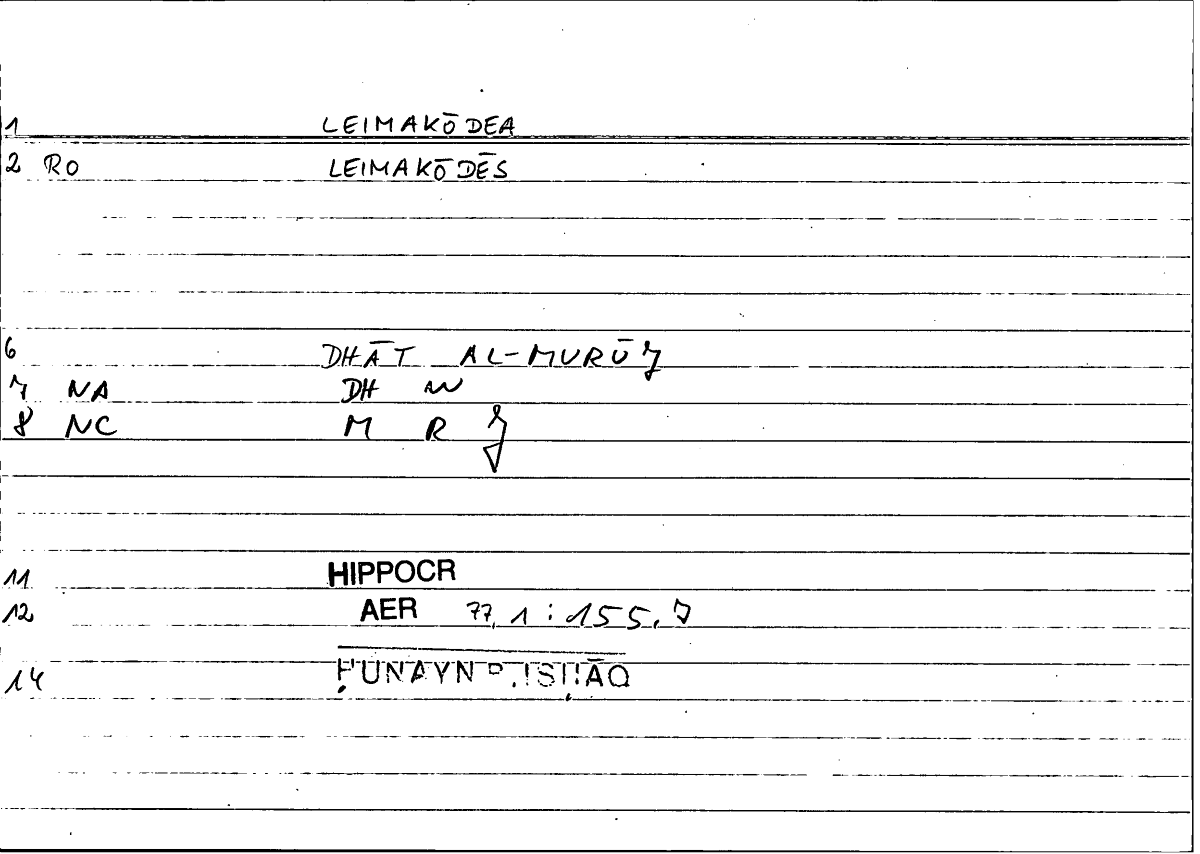 1 LEIMAKŌDEA
2 RO LEIMAKŌDĒS
6 DHĀT AL-MURŪJ
7 NA DH W
8 NC M R J
11 HIPPOCR
12 AER 77,1 : 155,7
14 ḤUNAYN B. ISḤĀQ